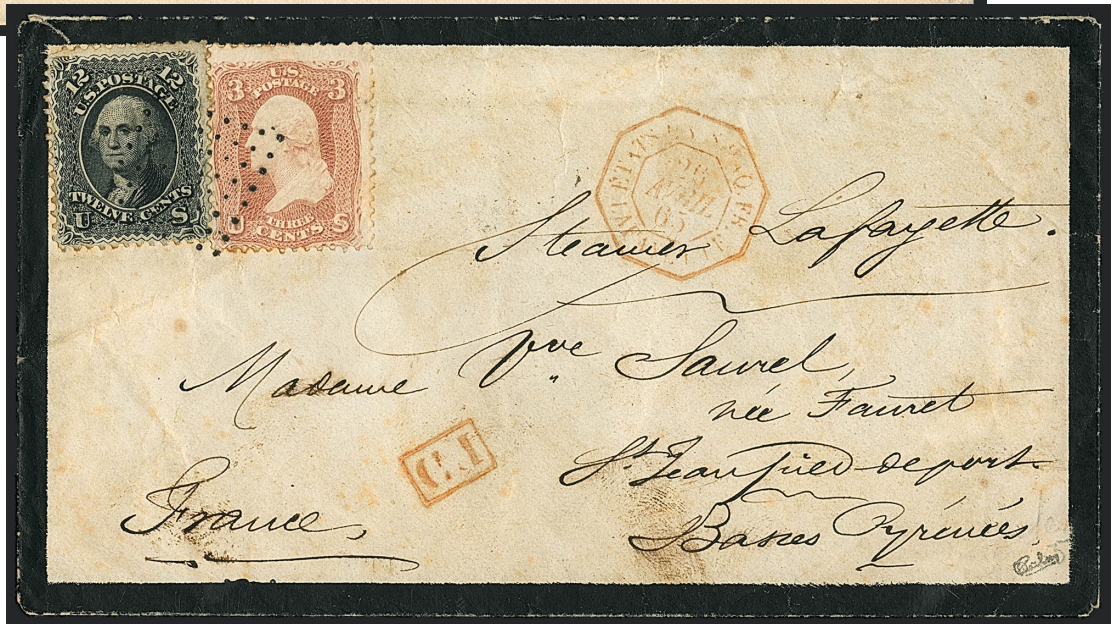 12 12
U.S. POSTAGE
TWELVE CENTS
U S
3 U.S. 3
POSTAGE
THREE
U CENTS S
26
AVRIL
65
Steamer Lafayette.
Madame Vve Saurel,
née Fauret
C.I
St. Jean Pied-de-port.
Basses Pyrénées,
France,